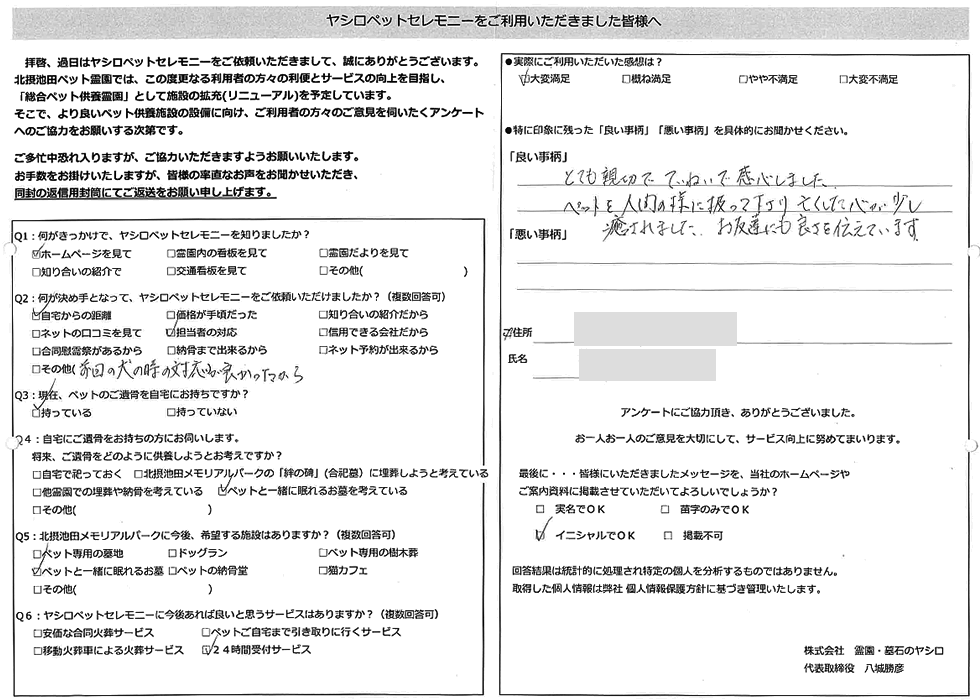 ヤシロペットセレモニーをご利用いただきました皆様へ
拝啓、過日はヤシロペットセレモニーをご依頼いただきまして、誠にありがとうございます。
北摂池田ペット霊園では、この度更なる利用者の方々の利便とサービスの向上を目指し、
「総合ペット供養霊園」として施設の拡充(リニューアル)を予定しています。
そこで、より良いペット供養施設の設備に向け、ご利用者の方々のご意見を伺いたくアンケート
へのご協力をお願いする次第です。
ご多忙中恐れ入りますが、ご協力いただきますようお願いいたします。
お手数をお掛けいたしますが、皆様の率直なお声をお聞かせいただき、
同封の返信用封筒にてご返送をお願い申し上げます。
Q1：何がきっかけで、ヤシロペットセレモニーを知りましたか？
☑ホームページを見て □霊園内の看板を見て □霊園だよりを見て
□知り合いの紹介で □交通看板を見て □その他( )
Q2：何が決め手となって、ヤシロペットセレモニーをご依頼いただけましたか？（複数回答可）
☑自宅からの距離 □価格が手頃だった □知り合いの紹介だから
□ネットの口コミを見て ☑担当者の対応 □信用できる会社だから
□合同慰霊祭があるから □納骨まで出来るから □ネット予約が出来るから
□その他(前回の犬の時の対応が良かったから
Q3：現在、ペットのご遺骨を自宅にお持ちですか？
☑持っている □持っていない
Q4：自宅にご遺骨をお持ちの方にお伺いします。
将来、ご遺骨をどのように供養しようとお考えですか？
□自宅で祀っておく □北摂池田メモリアルパークの「絆の碑」（合祀墓）に埋葬しようと考えている
□他霊園での埋葬や納骨を考えている ☑ペットと一緒に眠れるお墓を考えている
□その他( )
Q5：北摂池田メモリアルパークに今後、希望する施設はありますか？（複数回答可）
□ペット専用の墓地 □ドッグラン □ペット専用の樹木葬
☑ペットと一緒に眠れるお墓 □ペットの納骨堂 □猫カフェ
□その他( )
Q６：ヤシロペットセレモニーに今後あれば良いと思うサービスはありますか？（複数回答可）
□安価な合同火葬サービス □ペットご自宅まで引き取りに行くサービス
□移動火葬車による火葬サービス ☑２４時間受付サービス
●実際にご利用いただいた感想は？
☑大変満足 □概ね満足 □やや不満足 □大変不満足
●特に印象に残った「良い事柄」「悪い事柄」を具体的にお聞かせください。
「良い事柄」
とても親切で ていねいで 感心しました。
ペットを人間の様に扱って下さり 亡くした心が 少し
「悪い事柄」 癒されました。 お友達にも良さを伝えています。
☑住所
氏名
アンケートにご協力頂き、ありがとうございました。
お一人お一人のご意見を大切にして、サービス向上に努めてまいります。
最後に・・・皆様にいただきましたメッセージを、当社のホームページや
ご案内資料に掲載させていただいてよろしいでしょうか？
□ 実名でＯＫ □ 苗字のみでＯＫ
☑ イニシャルでＯＫ □ 掲載不可
回答結果は統計的に処理され特定の個人を分析するものではありません。
取得した個人情報は弊社 個人情報保護方針に基づき管理いたします。
株式会社 霊園・墓石のヤシロ
代表取締役 八城勝彦